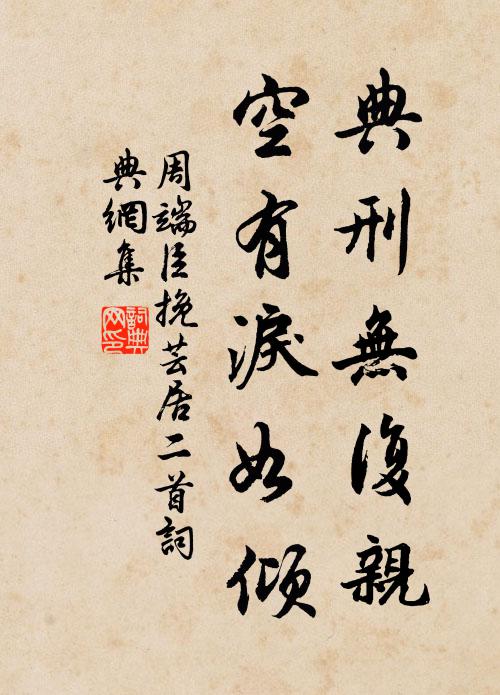 典刑無復親
空有淚如傾
周端臣挽芸居二首詞
典網集
詞典網印